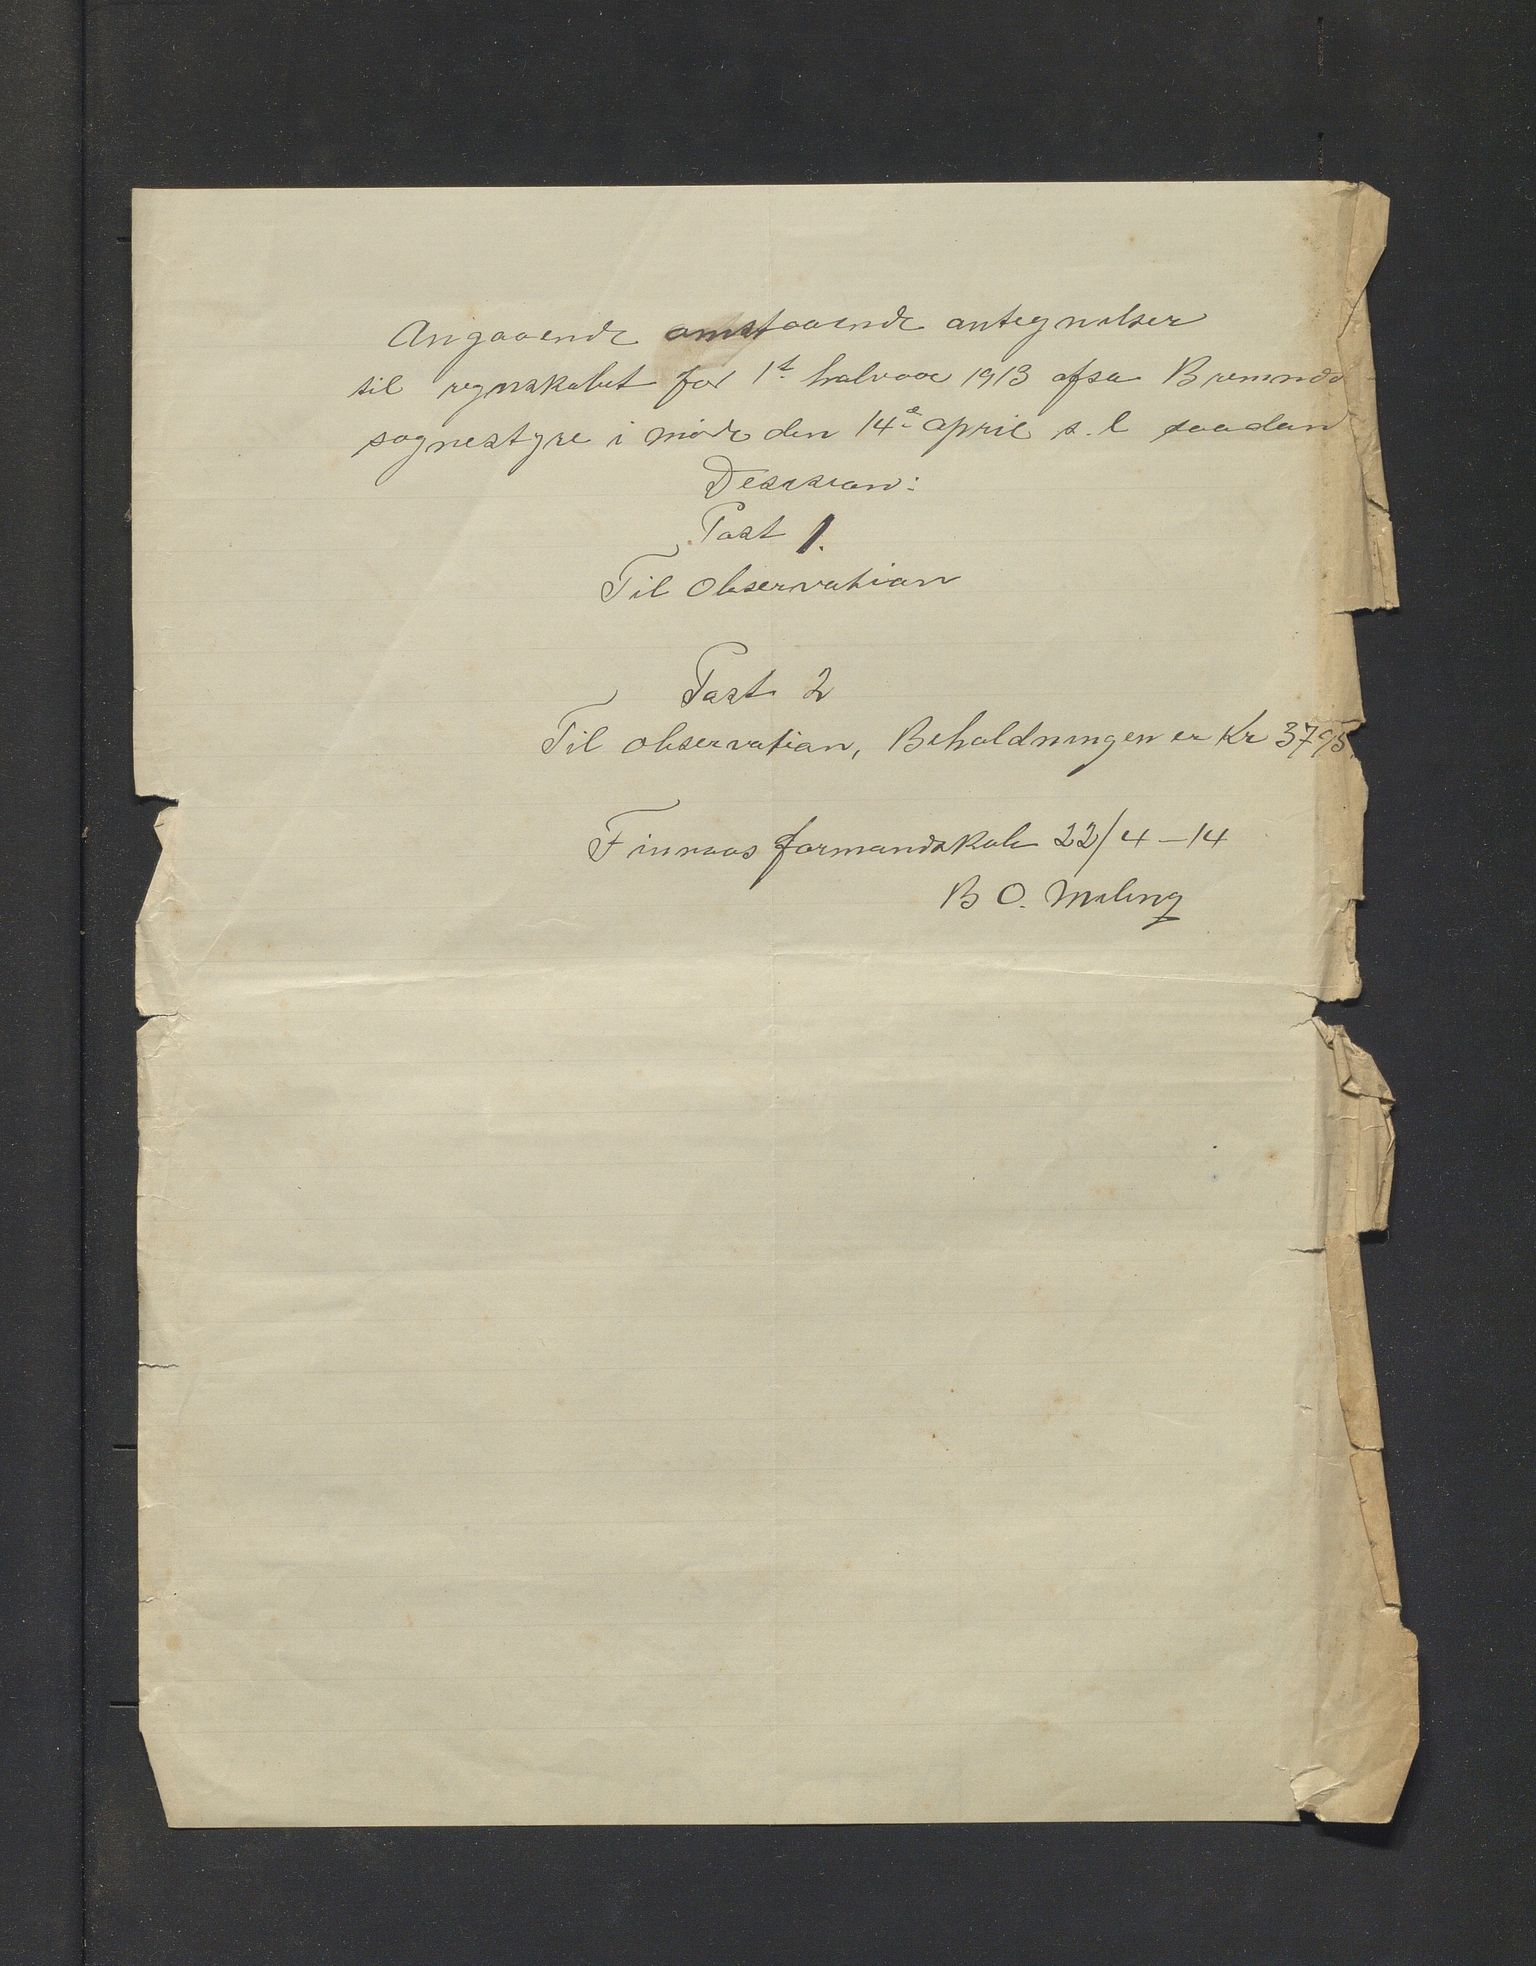 Angaaende omstaaende antegnelser
til regnskabet for 1ste halvaar 1913 afsa Bremnes
sognestyre i møde den 14de april s. l saadan
Desision:
Post 1.
Til Observation
Post 2
Til observation, Beholdningen er Kr 3795
Finnaas formandskab 22/4–14
B O. Meling